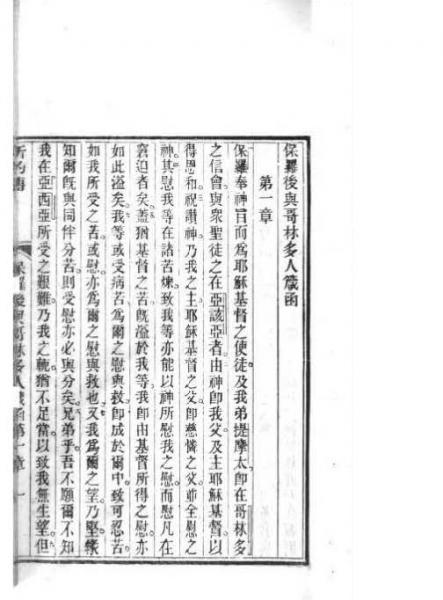 保羅後與哥林多人箴函
第一章
保羅奉神旨而為耶穌基督之使徒及我弟提摩太卽在哥林多
之信會與衆聖徒之在亞該亞者由神卽我父及主耶穌基督以
得恩和祝讚神乃我之主耶穌基督之父卽慈憐之父並全慰之
神其慰我等在諸苦煉致我等亦能以神所慰我之慰而慰凡在
窘迫者矣蓋猶基督之苦旣溢於我等我卽由基督所得之慰亦
如此溢矣我等或受病苦爲爾之慰與救卽成於爾中致可忍苦
如我所受之苦或慰亦爲爾之慰與救也又我爲爾之望乃堅
知爾旣與同伴分苦則受慰亦必與分矣兄弟乎吾不願爾不知
我在亞西亞所受之艱難乃我之猶不足當以致我無生望但
保羅後與哥林多人箴函第一章 一